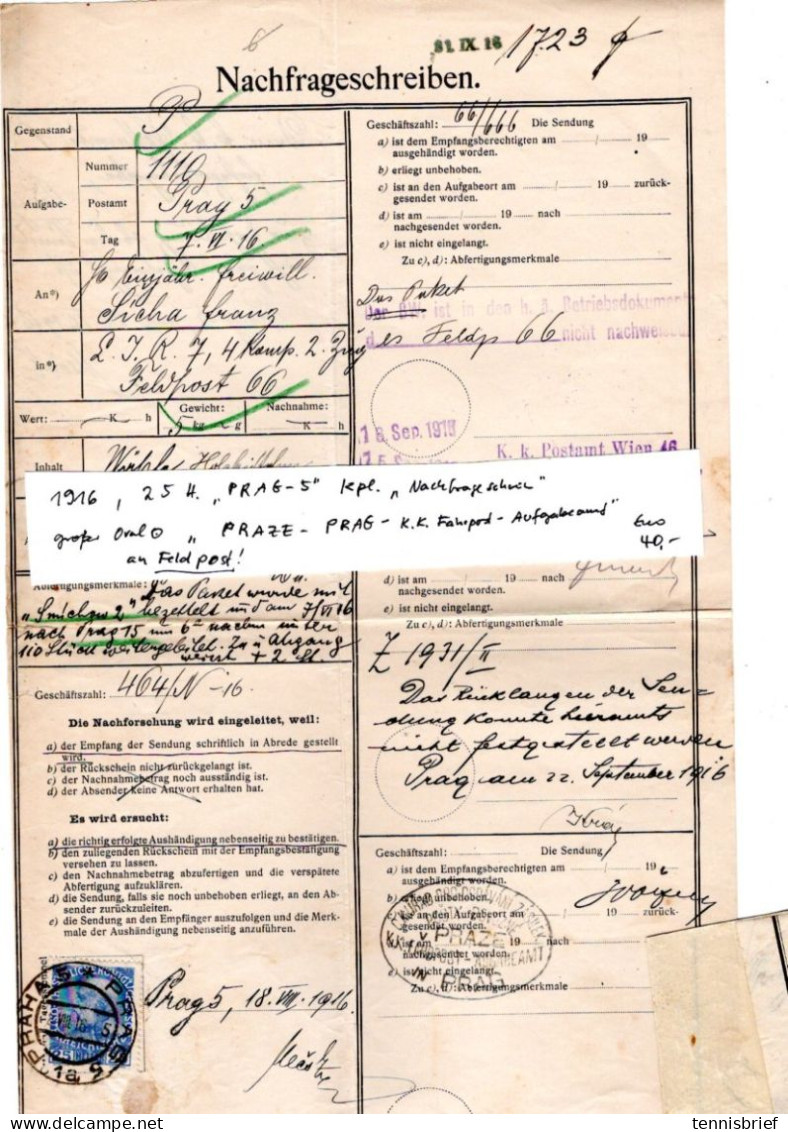 31. IX. 16
1723
Nachfrageschreiben.
Gegenstand
Nummer 1110
Aufgabe- Postamt Prag 5
Tag 7. VI. 16
An*) freiwill.
Sicha Franz
in*) L. I. R. 7, 4 Komp. 2. Zug
Feldpost 66
Wert: K h Gewicht: 5 kg g Nachnahme: K h
Inhalt
1916, 25 H. „PRAG-5" kpl. „Nachfrageschrei"
großer Oval „PRAZE - PRAG - K.K. Fahrpost - Aufgabeamt" Euro
40,-
an Feldpost!
Abfertigungsmerkmale: Das Paket wurde mit
„Smichow 2" bezettelt und am 7/VI 16
nach Prag 15 um 6h nachm unter
110 Stück weitergeleitet. Zu u Abgang
+ 2 St.
Geschäftszahl: 464/N-16.
Die Nachforschung wird eingeleitet, weil:
a) der Empfang der Sendung schriftlich in Abrede gestellt
wird,
b) der Rückschein nicht zurückgelangt ist.
c) der Nachnahmebetrag noch ausständig ist.
d) der Absender keine Antwort erhalten hat.
Es wird ersucht:
a) die richtig erfolgte Aushändigung nebenseitig zu bestätigen.
b) den zuliegenden Rückschein mit der Empfangsbestätigung
versehen zu lassen.
c) den Nachnahmebetrag abzufertigen und die verspätete
Abfertigung aufzuklären.
d) die Sendung, falls sie noch unbehoben erliegt, an den Ab-
sender zurückzuleiten.
e) die Sendung an den Empfänger auszufolgen und die Merk-
male der Aushändigung nebenseitig anzuführen.
PRAHA 5 PRAG
25
Prag 5, 18. VIII. 1916
Geschäftszahl: 66/666 Die Sendung
a) ist dem Empfangsberechtigten am 19
ausgehändigt worden.
b) erliegt unbehoben.
c) ist an den Aufgabeort am 19 zurück-
gesendet worden.
d) ist am 19 nach
nachgesendet worden.
e) ist nicht eingelangt.
Zu c), d): Abfertigungsmerkmale
Das Paket
ist in den h. ä. Betriebsdokument
des Feldp 66 nicht nachweisb
18. Sep. 1916
K. k. Postamt Wien 46
d) ist am 19 nach
nachgesendet worden.
e) ist nicht eingelangt.
Zu c), d): Abfertigungsmerkmale
Z 1931/II
Das Rücklangen der Sen-
dung konnte hieramts
nicht festgestellt werden
Prag am 22. September 1916
Geschäftszahl: Die Sendung
a) ist dem Empfangsberechtigten am 19
ausgehändigt worden.
b) erliegt unbehoben.
c) ist an den Aufgabeort am 19 zurück-
gesendet worden.
d) ist am 19 nach
nachgesendet worden.
e) ist nicht eingelangt.
Zu c), d): Abfertigungsmerkmale
V PRAZE
PRAG
tennisbrief